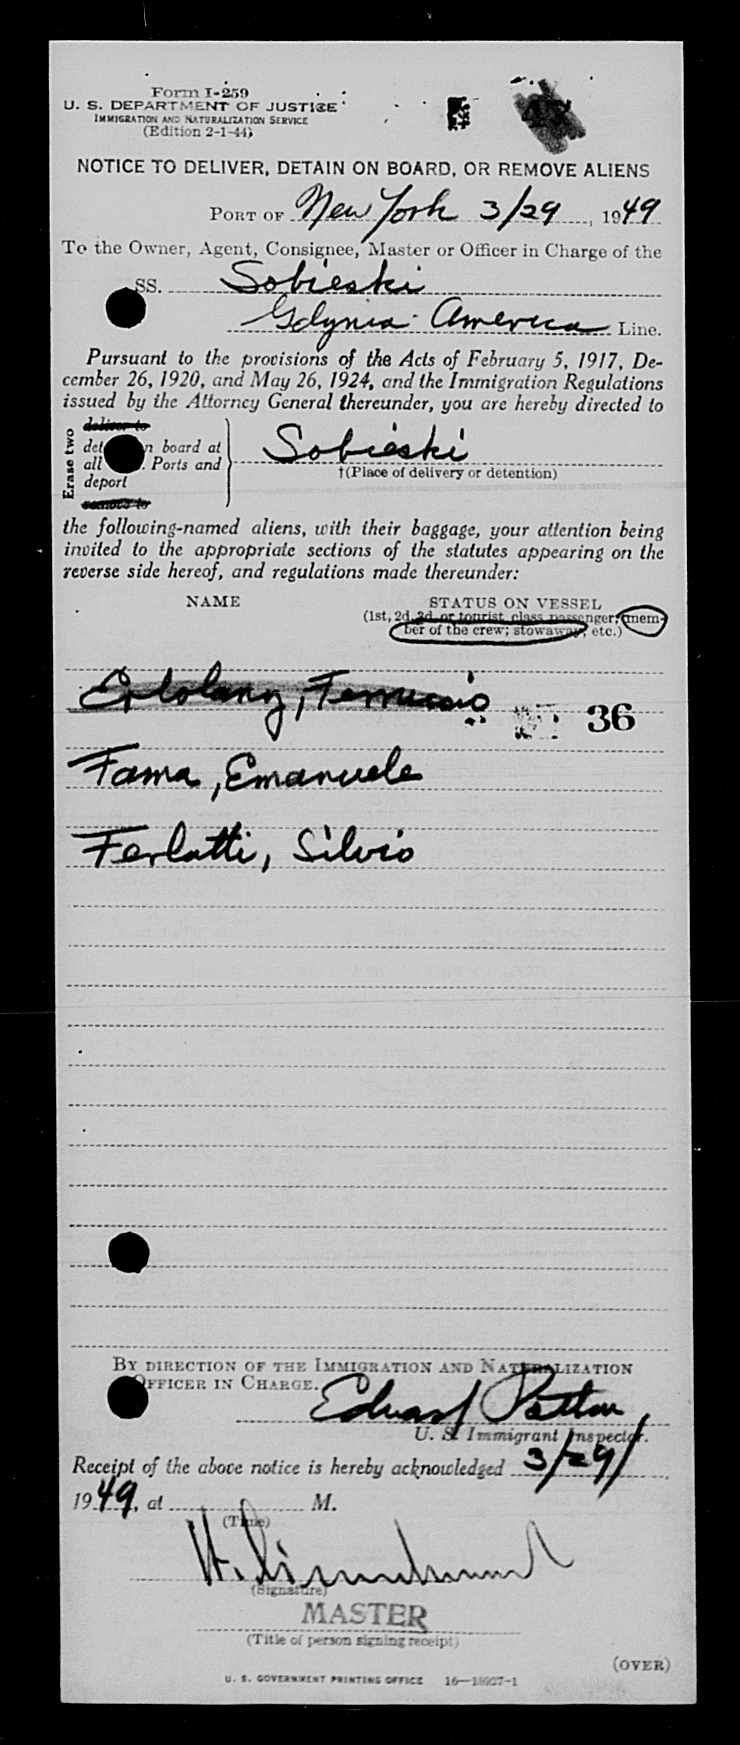 Form I-259
U. S. DEPARTMENT OF JUSTICE
IMMIGRATION AND NATURALIZATION SERVICE
(Edition 2-1-44)
NOTICE TO DELIVER, DETAIN ON BOARD, OR REMOVE ALIENS
PORT OF New York 3/29, 1949
To the Owner, Agent, Consignee, Master or Officer in Charge of the
SS. Sobieski
Gdynia America Line.
Pursuant to the provisions of the Acts of February 5, 1917, De-
cember 26, 1920, and May 26, 1924, and the Immigration Regulations
issued by the Attorney General thereunder, you are hereby directed to
Erase two
deliver to
det n board at
all . Ports and
deport
remove to
Sobieski
†(Place of delivery or detention)
the following-named aliens, with their baggage, your attention being
invited to the appropriate sections of the statutes appearing on the
reverse side hereof, and regulations made thereunder:
NAME STATUS ON VESSEL
(1st, 2d, 3d, or tourist class passenger; mem-
ber of the crew; stowaway, etc.)
36
Fama, Emanuele
Ferlatti, Silvio
BY DIRECTION OF THE IMMIGRATION AND NATURALIZATION
OFFICER IN CHARGE.
Edward Patton
U. S. Immigrant Inspector.
Receipt of the above notice is hereby acknowledged 3/29/
1949, at M.
(Time)
H.
(Signature)
MASTER
(Title of person signing receipt)
(OVER)
U. S. GOVERNMENT PRINTING OFFICE 16—18927-1